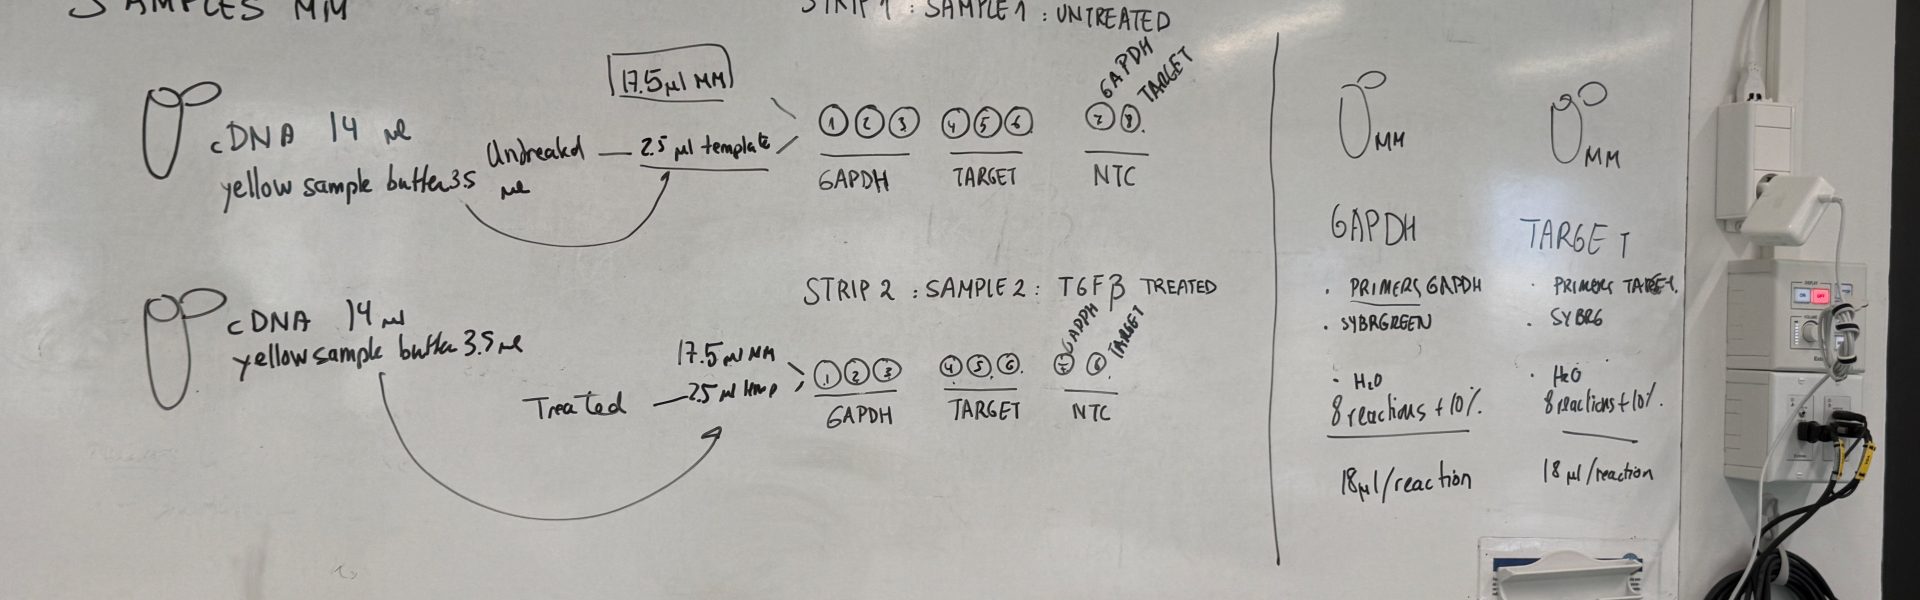 SAMPLES MM
STRIP 1 : SAMPLE 1 : UNTREATED
17.5 µl MM
cDNA 14 µl
yellow sample buffer 3.5 µl
Untreated
2.5 µl template
1 2 3 4 5 6 7 8
GAPDH
TARGET
GAPDH TARGET NTC
STRIP 2 : SAMPLE 2 : TGFβ TREATED
cDNA 14 µl
yellow sample buffer 3.5 µl
Treated
17.5 µl MM
2.5 µl temp
1 2 3 4 5 6 7 8
GAPDH
TARGET
GAPDH TARGET NTC
MM
GAPDH
· PRIMERS GAPDH
· SYBRGREEN
· H2O
8 reactions + 10%.
18 µl/reaction
MM
TARGET
· PRIMERS TARGET.
· SYBRG
· H2O
8 reactions + 10%.
18 µl/reaction